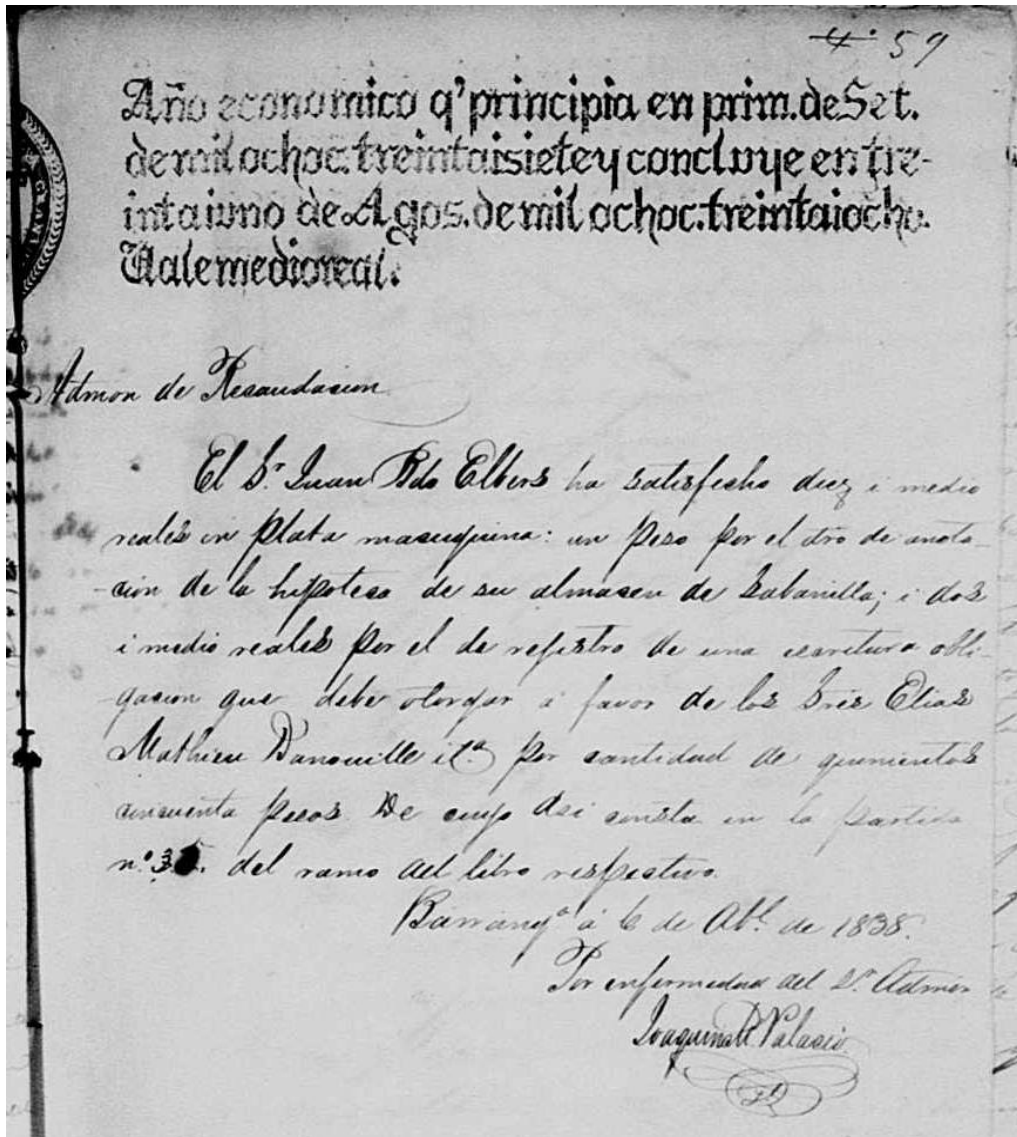 4. 59
Año economico q' principia en prim. de Set.
de mil ochoc. treintaisiete y concluye en tre-
inta i uno de Agos. de mil ochoc. treinta i ocho.
Vale medio real.
Admon de Recaudacion
El Sr. Juan Bdo Elbers ha satisfecho diez i medio
reales en plata macuquina: un peso por el dro de anota-
cion de la hipoteca de su almacen de Sabanilla; i dos
i medio reales por el de rejistro de una escritura obli-
gacion que debe otorgar á favor de los Sres Elias
Mathieu Danouille i Ca. por cantidad de quinientos
cincuenta pesos. De cuyo asi consta en la partida
n.° del ramo del libro respectivo.
Barranqa. á 6 de Abl. de 1838.
Por enfermedad del Sr. Admor
Joaquin Palacio